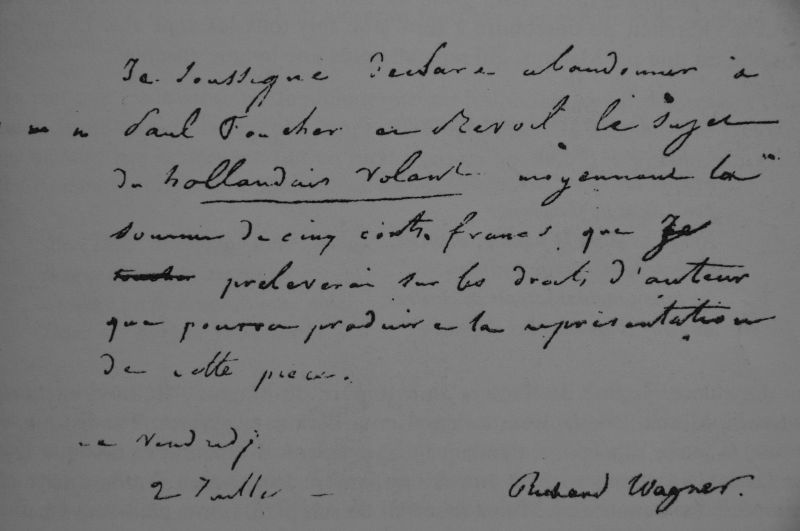 Je soussigné declare abandonner à
Paul Foucher et Revoil le sujet
du hollandais volant moyennant la
somme de cinq cents francs que je
toucher preleverai sur les droits d'auteur
que pourra produire la représentation
de cette piece.
ce vendredj.
2 Juillet
Richard Wagner.